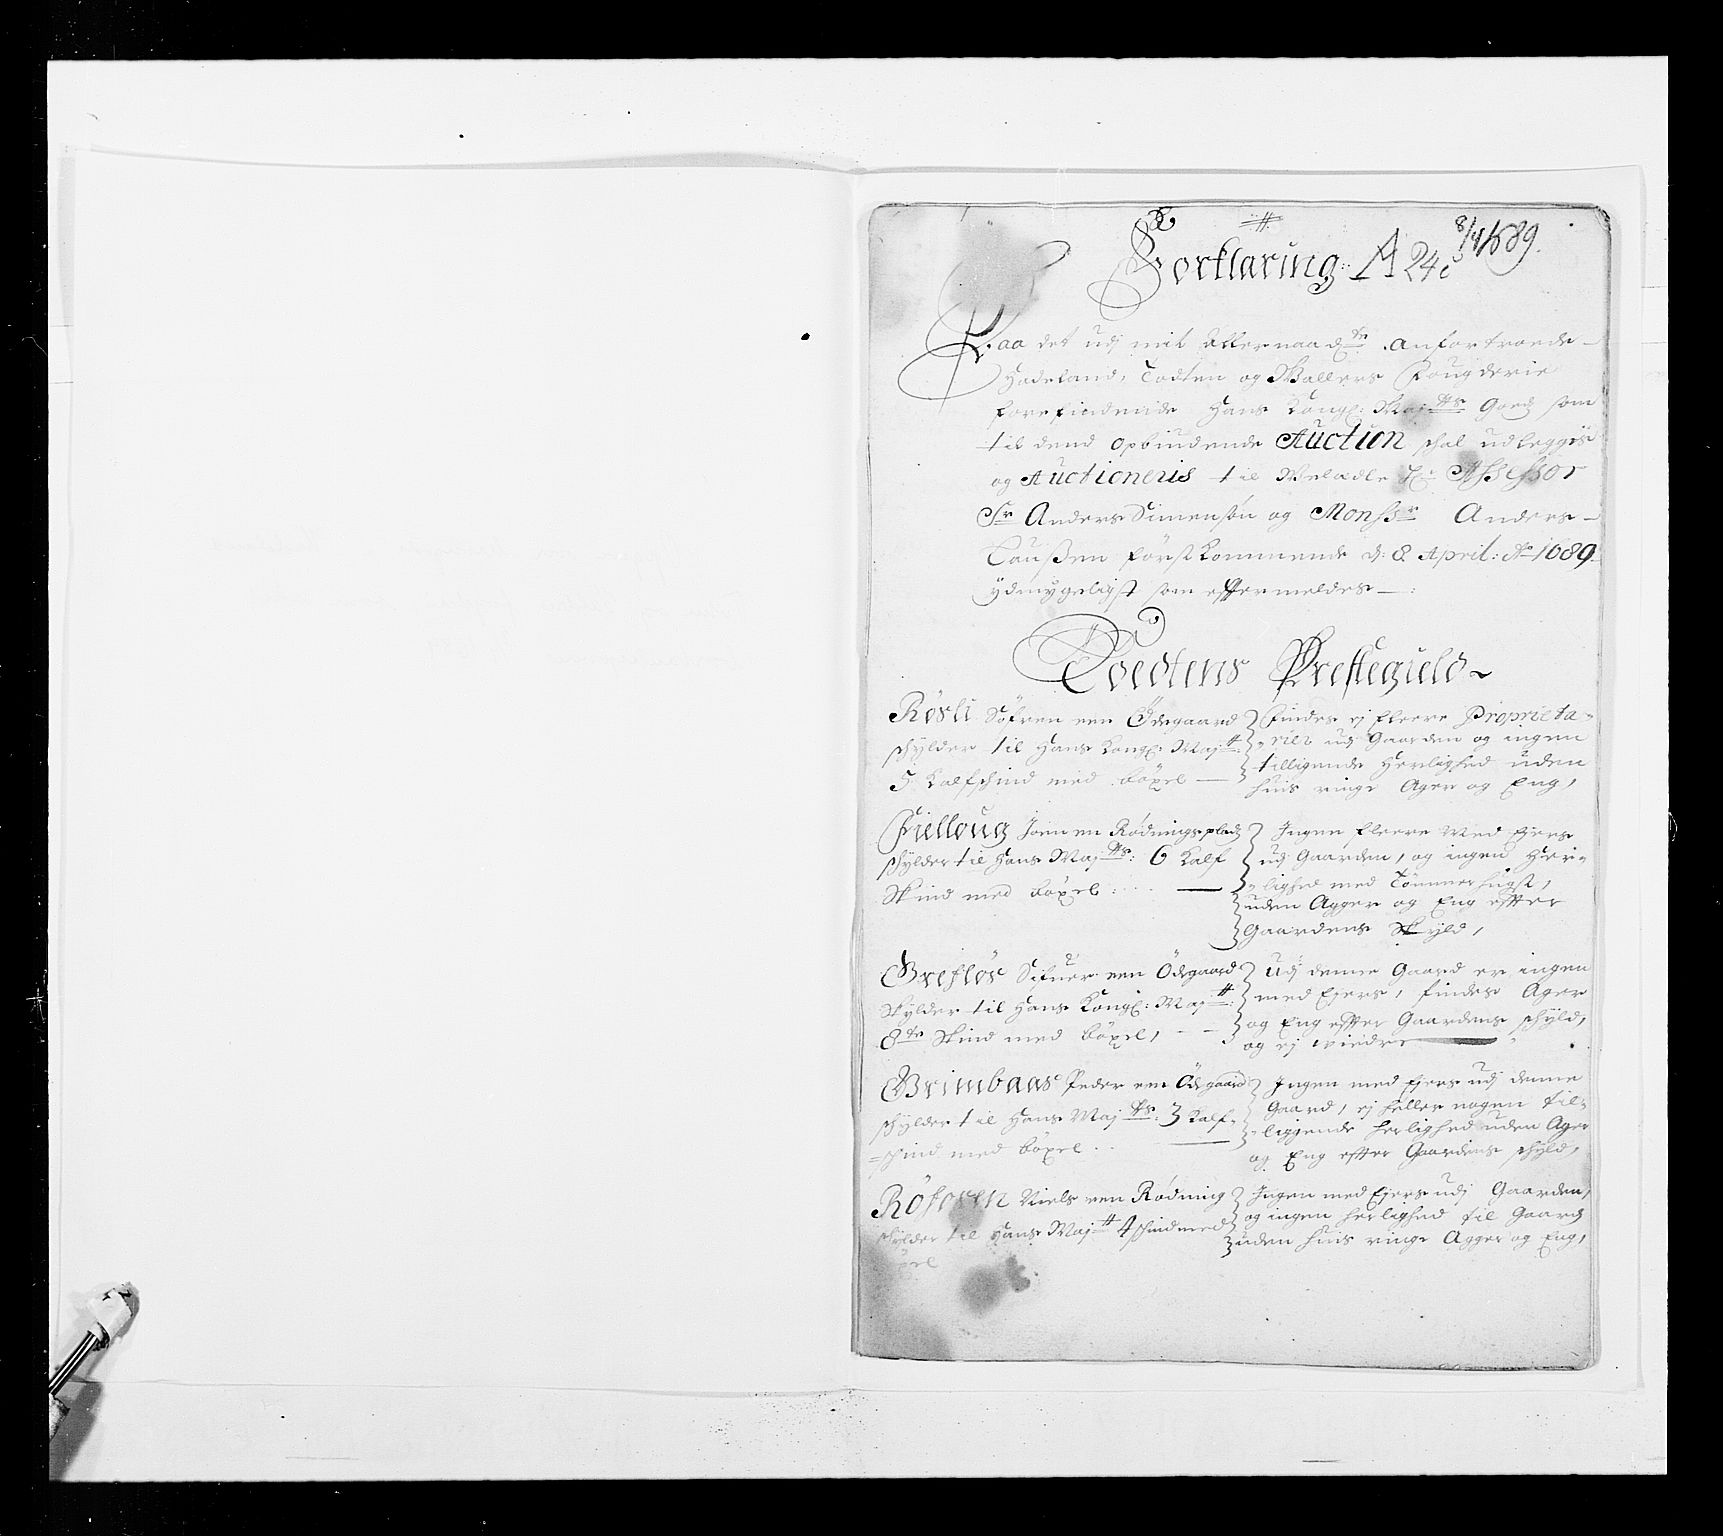 Forklaring A 24c 8/4 1689.
Paa det udj mit allernaadte anfortroede
Hadeland, Todten og Walders Fougderie
forefindende Hans Kongl: Maj:tts Goeds som
til dend opbiudende Auction skal udleggis
og Auctioneris til Welædle Hr: Assessor
Sr Anders Simensøn og Monssr Anders
Laußen førstkommende d: 8 April: Ao 1689
ydmygeligst som effermeldes
Toedtens Prestegield
Røsli Søfren een Ødegaard
skylder til Hans Kongl: Maj:tt
5 Kalfskind med bøxel
Findes ej fleere Proprieta-
rier udj Gaarden og ingen
tilligende Herlighed uden
huis ringe Ager og Eng,
Fielloug Joen en Rødningsplads
skylder til Hans Maj:tts: 6 Kalf
Skind med bøxel:
Ingen fleere Med Ejere
udj Gaarden, og ingen Her-
lighed med Tømmerhugst,
uden Agger og Eng effter
Gaardens Skyld,
Grefløs Sifuer een Ødegaard
Skylder til Hans Kongl: Maj:tt:
8te Skind med bøxel,
Udj denne Gaard er ingen
med Ejere, findes Ager
og Eng effter Gaardens skyld,
og ej wiedre
Grimbaas Peder een Ødegaard
skylder til Hans Maj:tts: 3 Kalf-
skind med bøxel
Ingen med Ejere udj denne
Gaard, ej heller nogen til-
liggende herlighed uden Ager
og Eng effter Gaardens skyld,
Niels een Rødning
skylder til Hans Maj:tt 4 skind med
bøxel
Ingen med Ejere udj Gaarden,
og ingen herlighed til Gaard
uden huis ringe Agger og Eng,